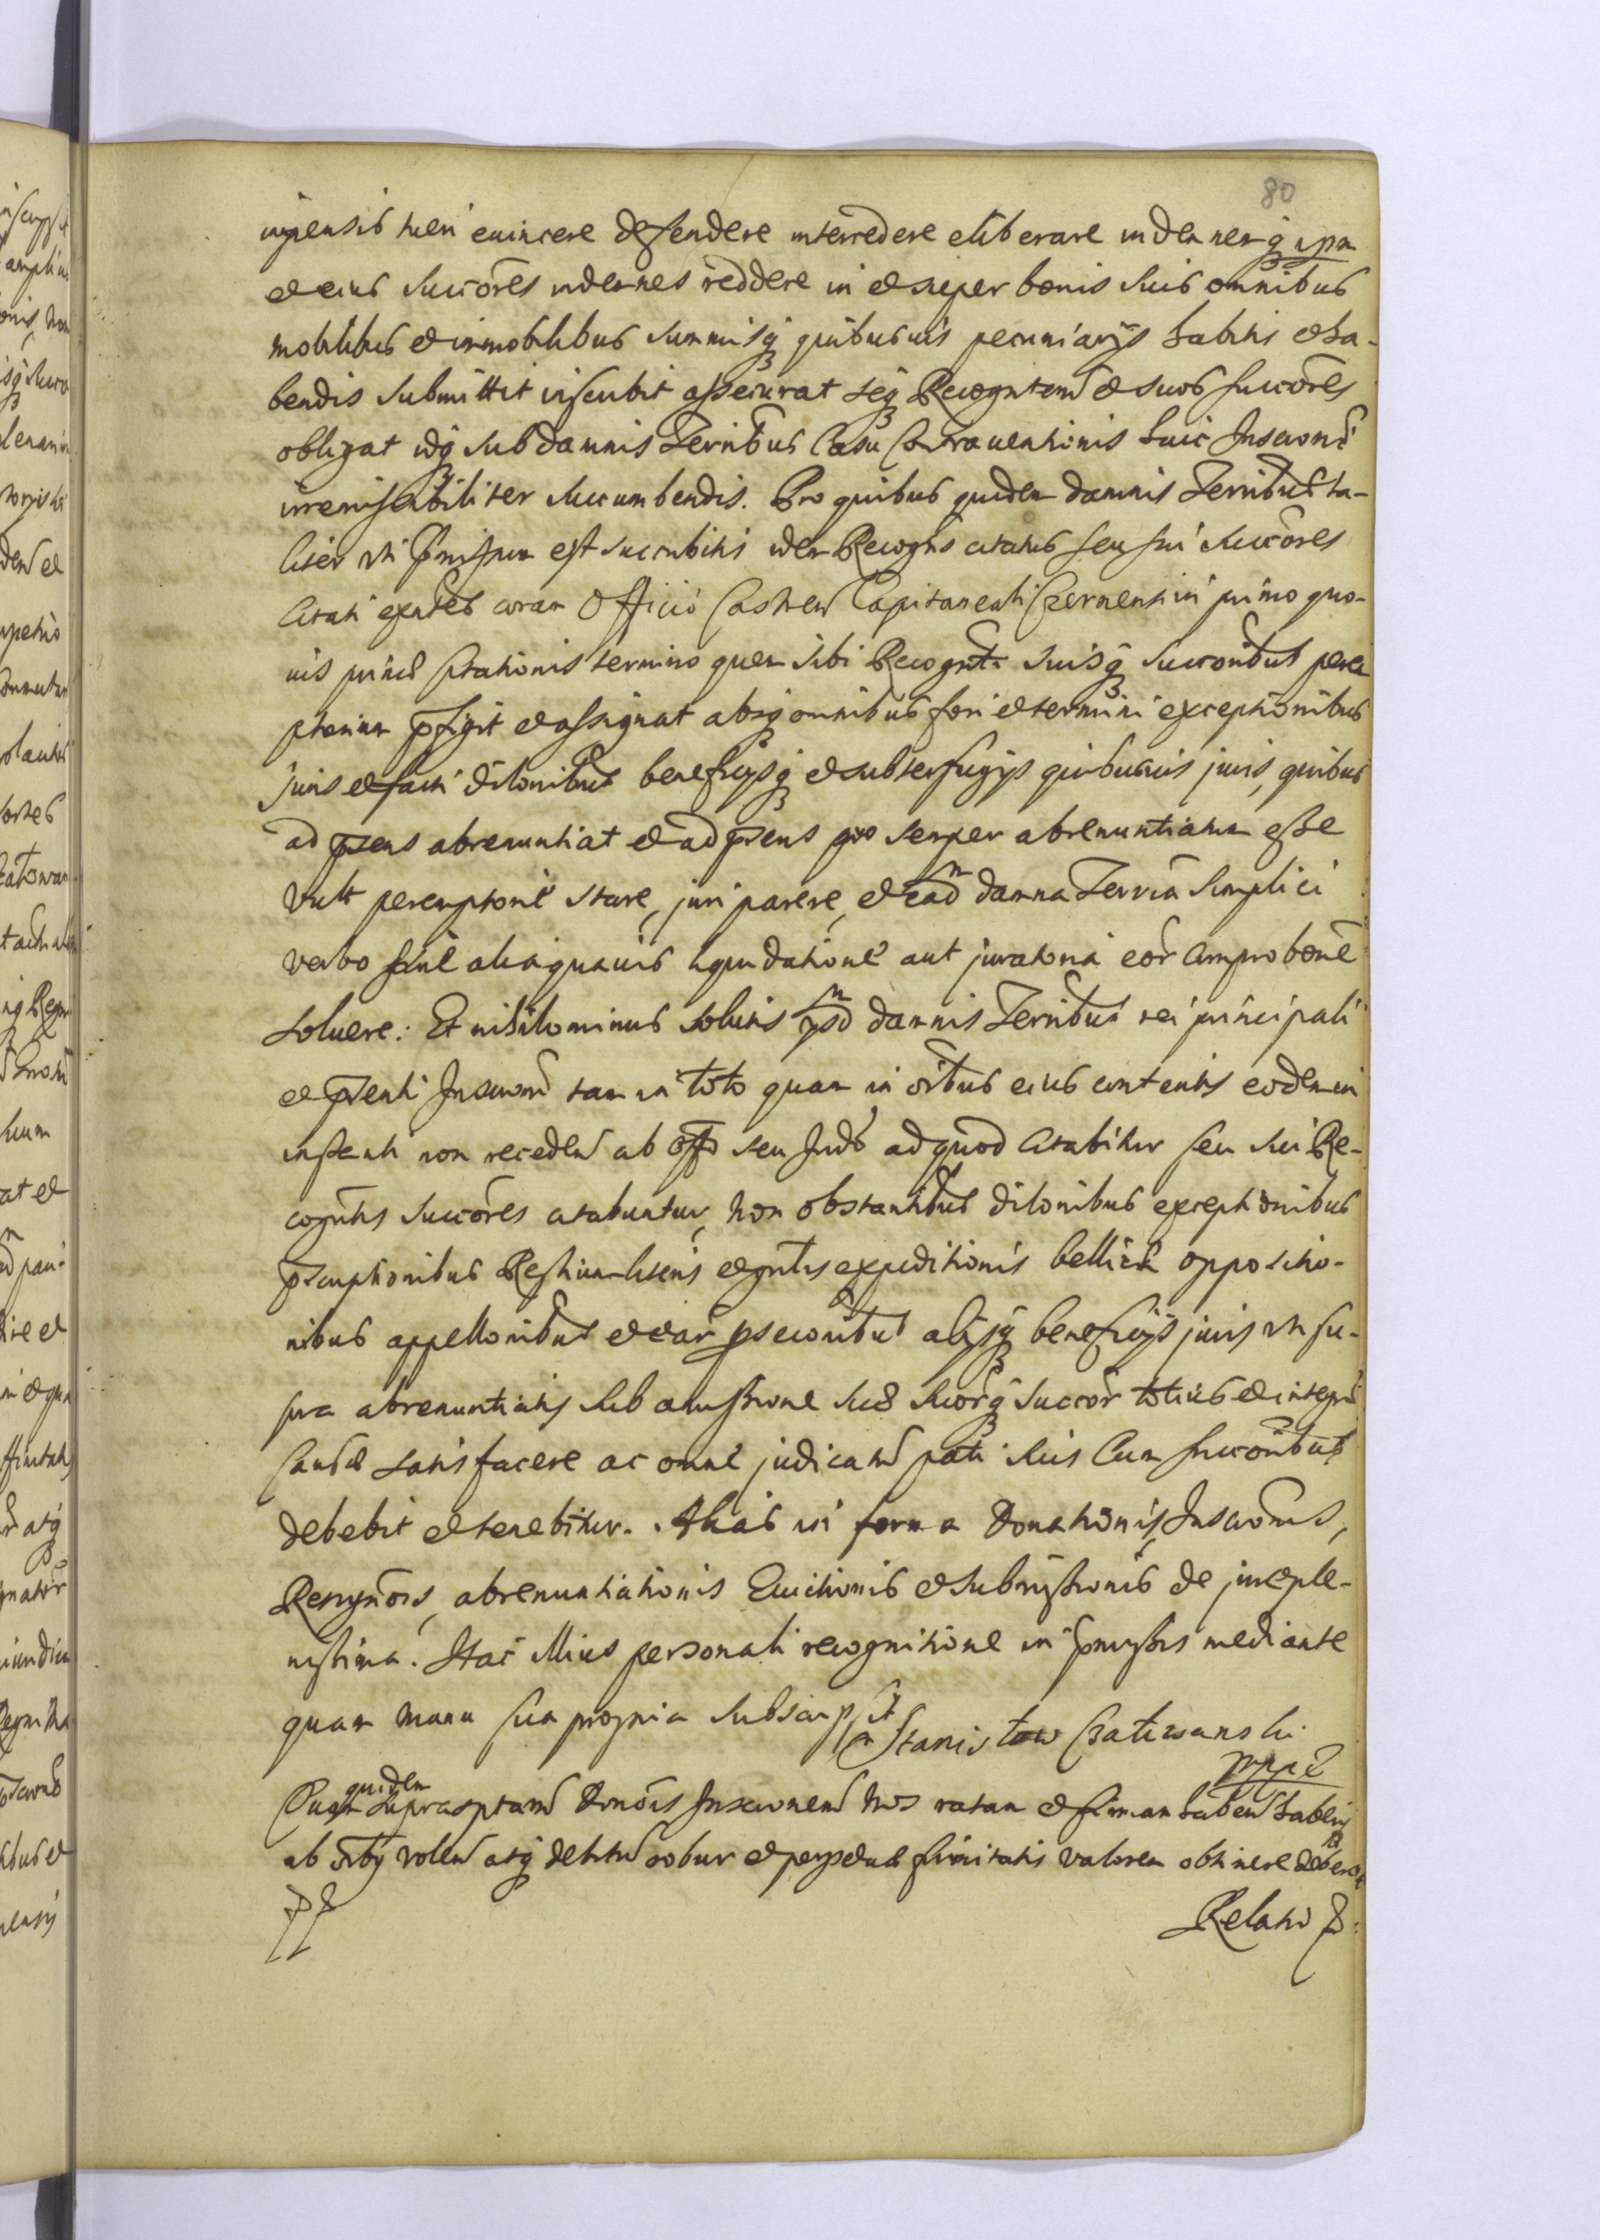 80
impensis tueri euincere defendere intercedere eliberare indemnemq ipm
et eius Succōres indemnes reddere in et super bonis suis omnibus
mobilibus et immobilibus summisq quibusuis pecuniarijs habitis et ha-
bendis submittit inscribit assecurat seq Recogntem et suos succōres
obligat idq sub damnis Terribus Casu Contrauentionis huic Inscrōni
irremissibiliter succumbendis. Pro quibus quidem damnis Terribus ta-
liter vti pmissum est succubitis idem Recogns citatus seu sui succōres
Citati exntes coram Officio Castren Capitaneali Czernensi in primo quo-
uis primę Citationis termino quem sibi Recognti suisq succoribus perem
ptorium pfigit et assignat absq omnibus fori et termini exceptionibus
juris et facti dilonibus beneficijsq et subterfugijs quibusuis juris, quibus
ad psens abrenuntiat et ad psens pro semper abrenuntiatum esse
vult peremptorie stare, juri parere, et eadm damna Terria Simplici
verbo sine aliaquauis liquidatione aut juratoria eor comprobone
soluere: Et nihilominus solutis psd damnis Terribus rei principali
et psenti Inscroni tam in toto quam in oibus eius contentis eodem in
instanti non receden ab offo seu Judo ad quod Citabitur seu sui Re-
cogntis succōres citabuntur, non obstantibus dilonibus exceptionibus
pscriptionibus Restium literis et gntis expeditionis bellicæ oppositio-
nibus appellonibus et ear psecoribus alijsq beneficijs juris vti su-
pra abrenuntiatis sub amissione suæ suorq succor totius et integræ
Causæ satisfacere ac omne judicatum pati suis Cum succoribus
debebit et tenebitur. Alias in forma Donationis, Inscrōnis,
Resignōis, abrenuntiationis Euictionis et submissionis de jure ple-
nissima. Stac illius personali recognitione in pmissis mediante
quam manu sua propria subscripsit
Stanisław Czatwanski
mppa
Quam quidem suprascptam donōis Inscrionem nos ratam et firmam haben habeij
ab oibq volen atq debitū robur et perpetuæ firmitatis valorem obtinere debere
Relatio